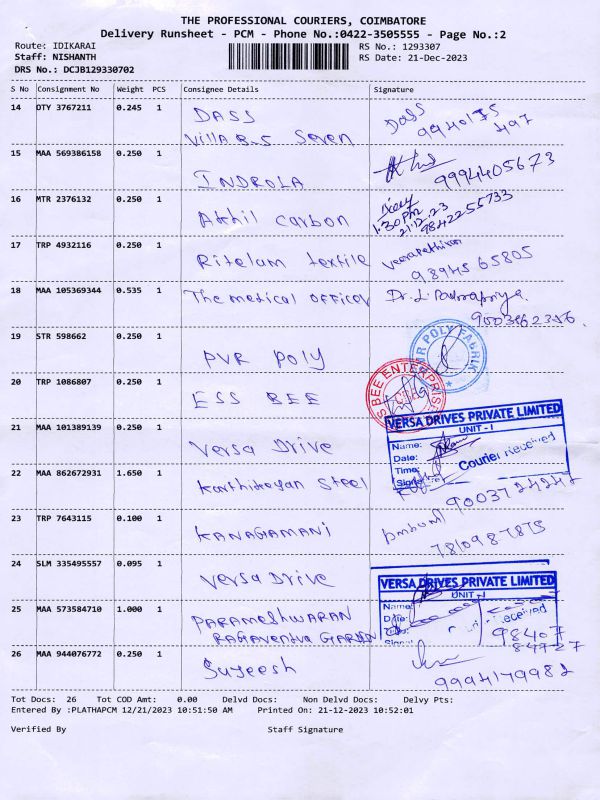 THE PROFESSIONAL COURIERS, COIMBATORE
Delivery Runsheet - PCM - Phone No.:0422-3505555 - Page No.:2
Route: IDIKARAI
RS No.: 1293307
Staff: NISHANTH
RS Date: 21-Dec-2023
DRS No.: DCJB129330702
S No Consignment No Weight PCS Consignee Details Signature
14 OTY 3767211 0.245 1 DASS Dass
Villa B-5 Seven 9940175
497
15 MAA 569386158 0.250 1 INDROLA 9994405673
16 MTR 2376132 0.250 1 Akhil Carbon
1.30 PM
21.12.23
9842255733
17 TRP 4932116 0.250 1 Ritelam textile
98945 65805
18 MAA 105369344 0.535 1 The medical officer Dr. L.
9003962356
19 STR 598662 0.250 1 PVR Poly
POLY FABRIK
20 TRP 1086807 0.250 1 ESS BEE
BEE ENTERPRISE
21 MAA 101389139 0.250 1 Versa Drive
VERSA DRIVES PRIVATE LIMITED
UNIT - I
Name:
Date:
Time:
Courier Received
22 MAA 862672931 1.650 1 Karthikeyan Steel
23 TRP 7643115 0.100 1 KANAGAMANI
7810987875
24 SLM 335495557 0.095 1 Versa Drive
VERSA DRIVES PRIVATE LIMITED
UNIT - I
Name:
Date:
Courier Received
25 MAA 573584710 1.000 1 PARAMESHWARAN
RAGAVENDRA GARDEN
98407
84727
26 MAA 944076772 0.250 1 Sujeesh
9994179982
Tot Docs: 26 Tot COD Amt: 0.00 Delvd Docs: Non Delvd Docs: Delvy Pts:
Entered By :PLATHAPCM 12/21/2023 10:51:50 AM Printed On: 21-12-2023 10:52:01
Verified By Staff Signature